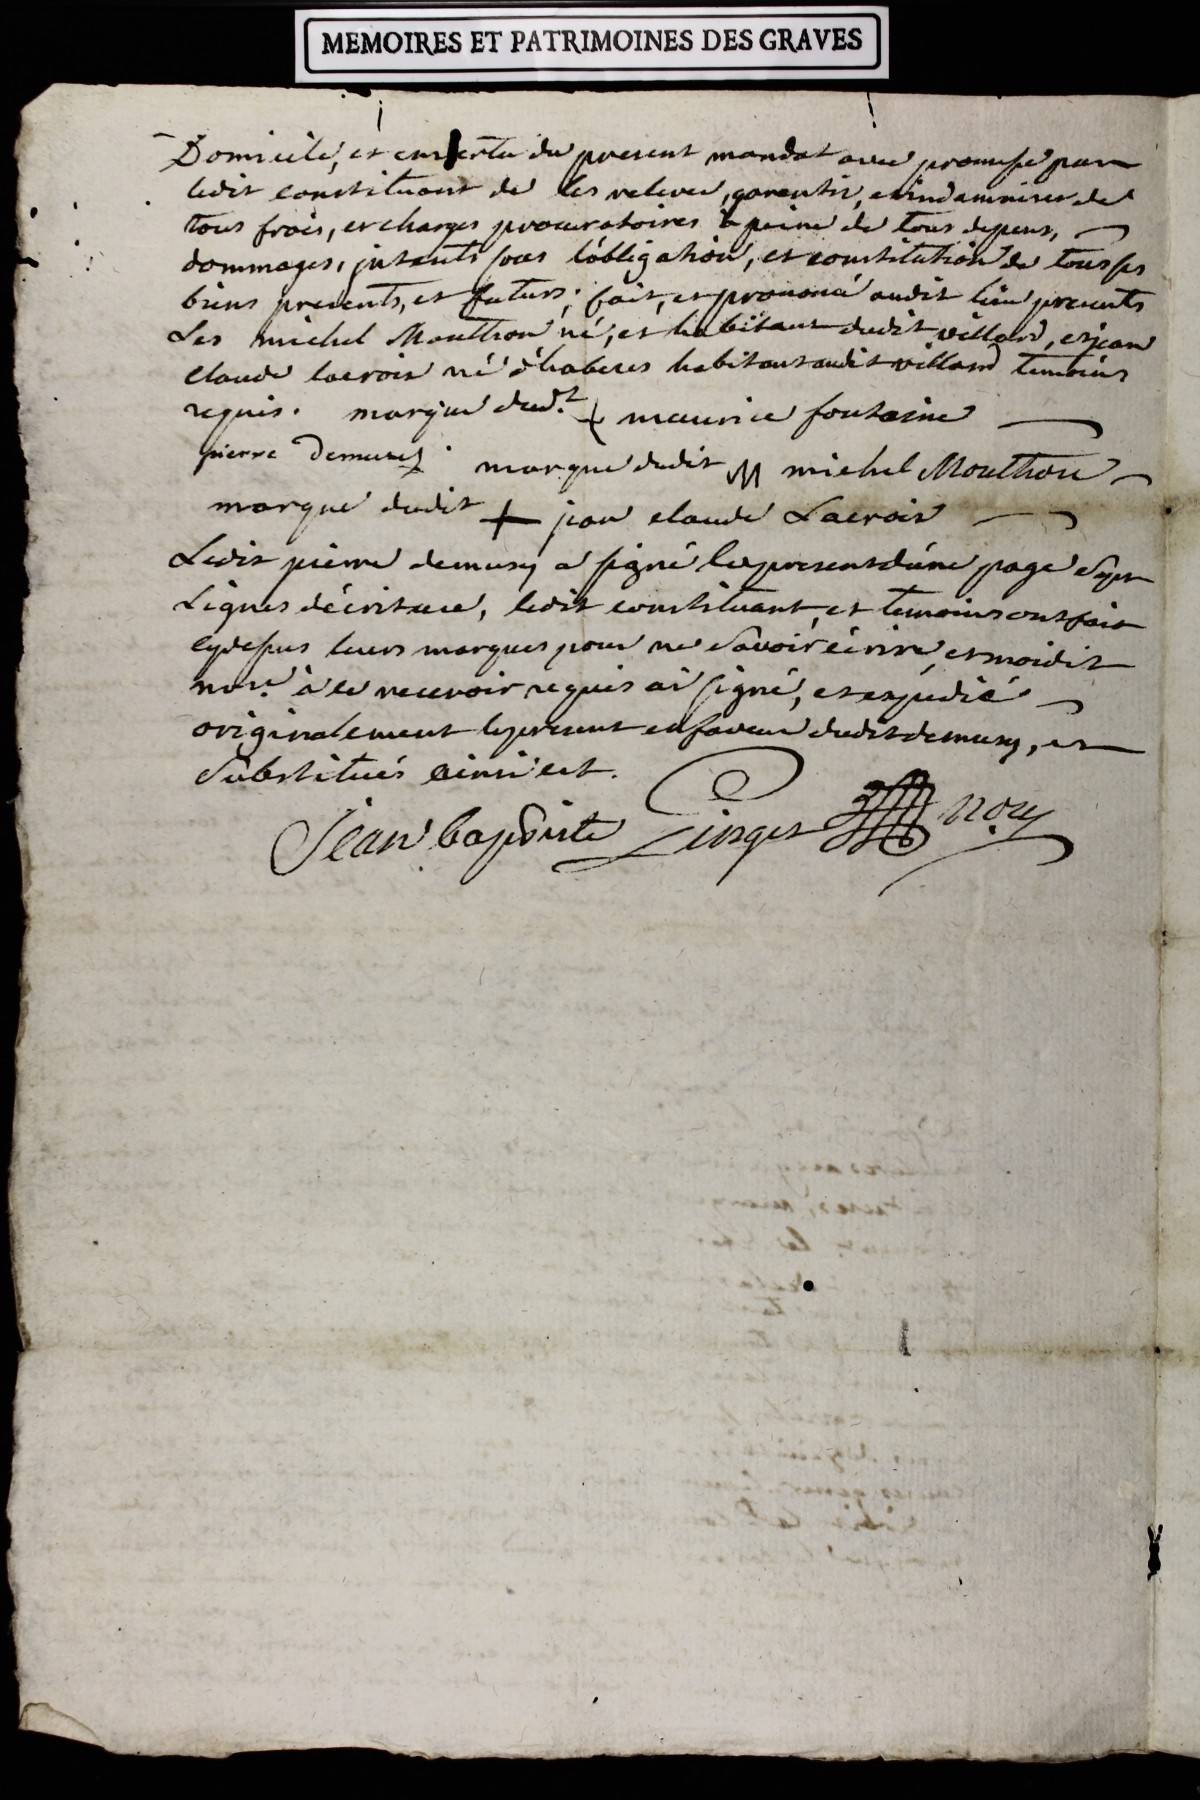 MEMOIRES ET PATRIMOINES DES GRAVES
Domicile, et en vertu du present mandat avec promesse par
ledit constituant de les relever, garentir, et indamniser de
tous frais, et charges procuratoires à peine de tous depens,
dommages, intérêts sous l'obbligation, et constitution de tous ses
biens presents, et futurs; fait, et prononcé audit lieu presents
Les michel Mouthon né, et habitant dudit villard, et jean
claude lacroix né d'haberes habitant audit villard temoins
requis. marque dud.t + maurice fontaine
pierre Demusy marque dudit M michel Mouthon
marque dudit + jean claude Lacroix
Ledit pierre demusy a signé le present d'une page sept
Lignes décriture, ledit constituant, et temoins ont fait
cydessus leurs marques pour ne savoir écrire, et moidit
not.re à ce recevoir requis ai signé, et expedié
originalement le present en faveur dudit demusy, et
substitués ainsi est.
Jean baptiste not.re